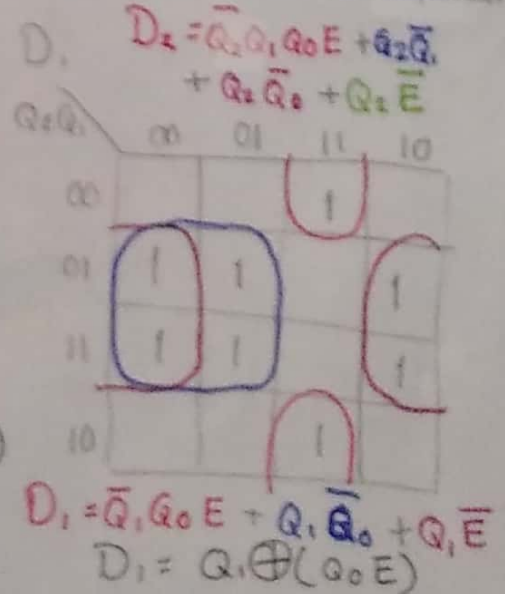 D₂ = Q̅₂Q₁Q₀E + Q₂Q̅₁
+ Q₂Q̅₀ + Q₂E̅
D₁
Q₂Q₁
00 01 11 10
00 1
01 1 1 1
11 1 1 1
10 1
D₁ = Q̅₁Q₀E + Q₁Q̅₀ + Q₁E̅
D₁ = Q₁⊕(Q₀E)